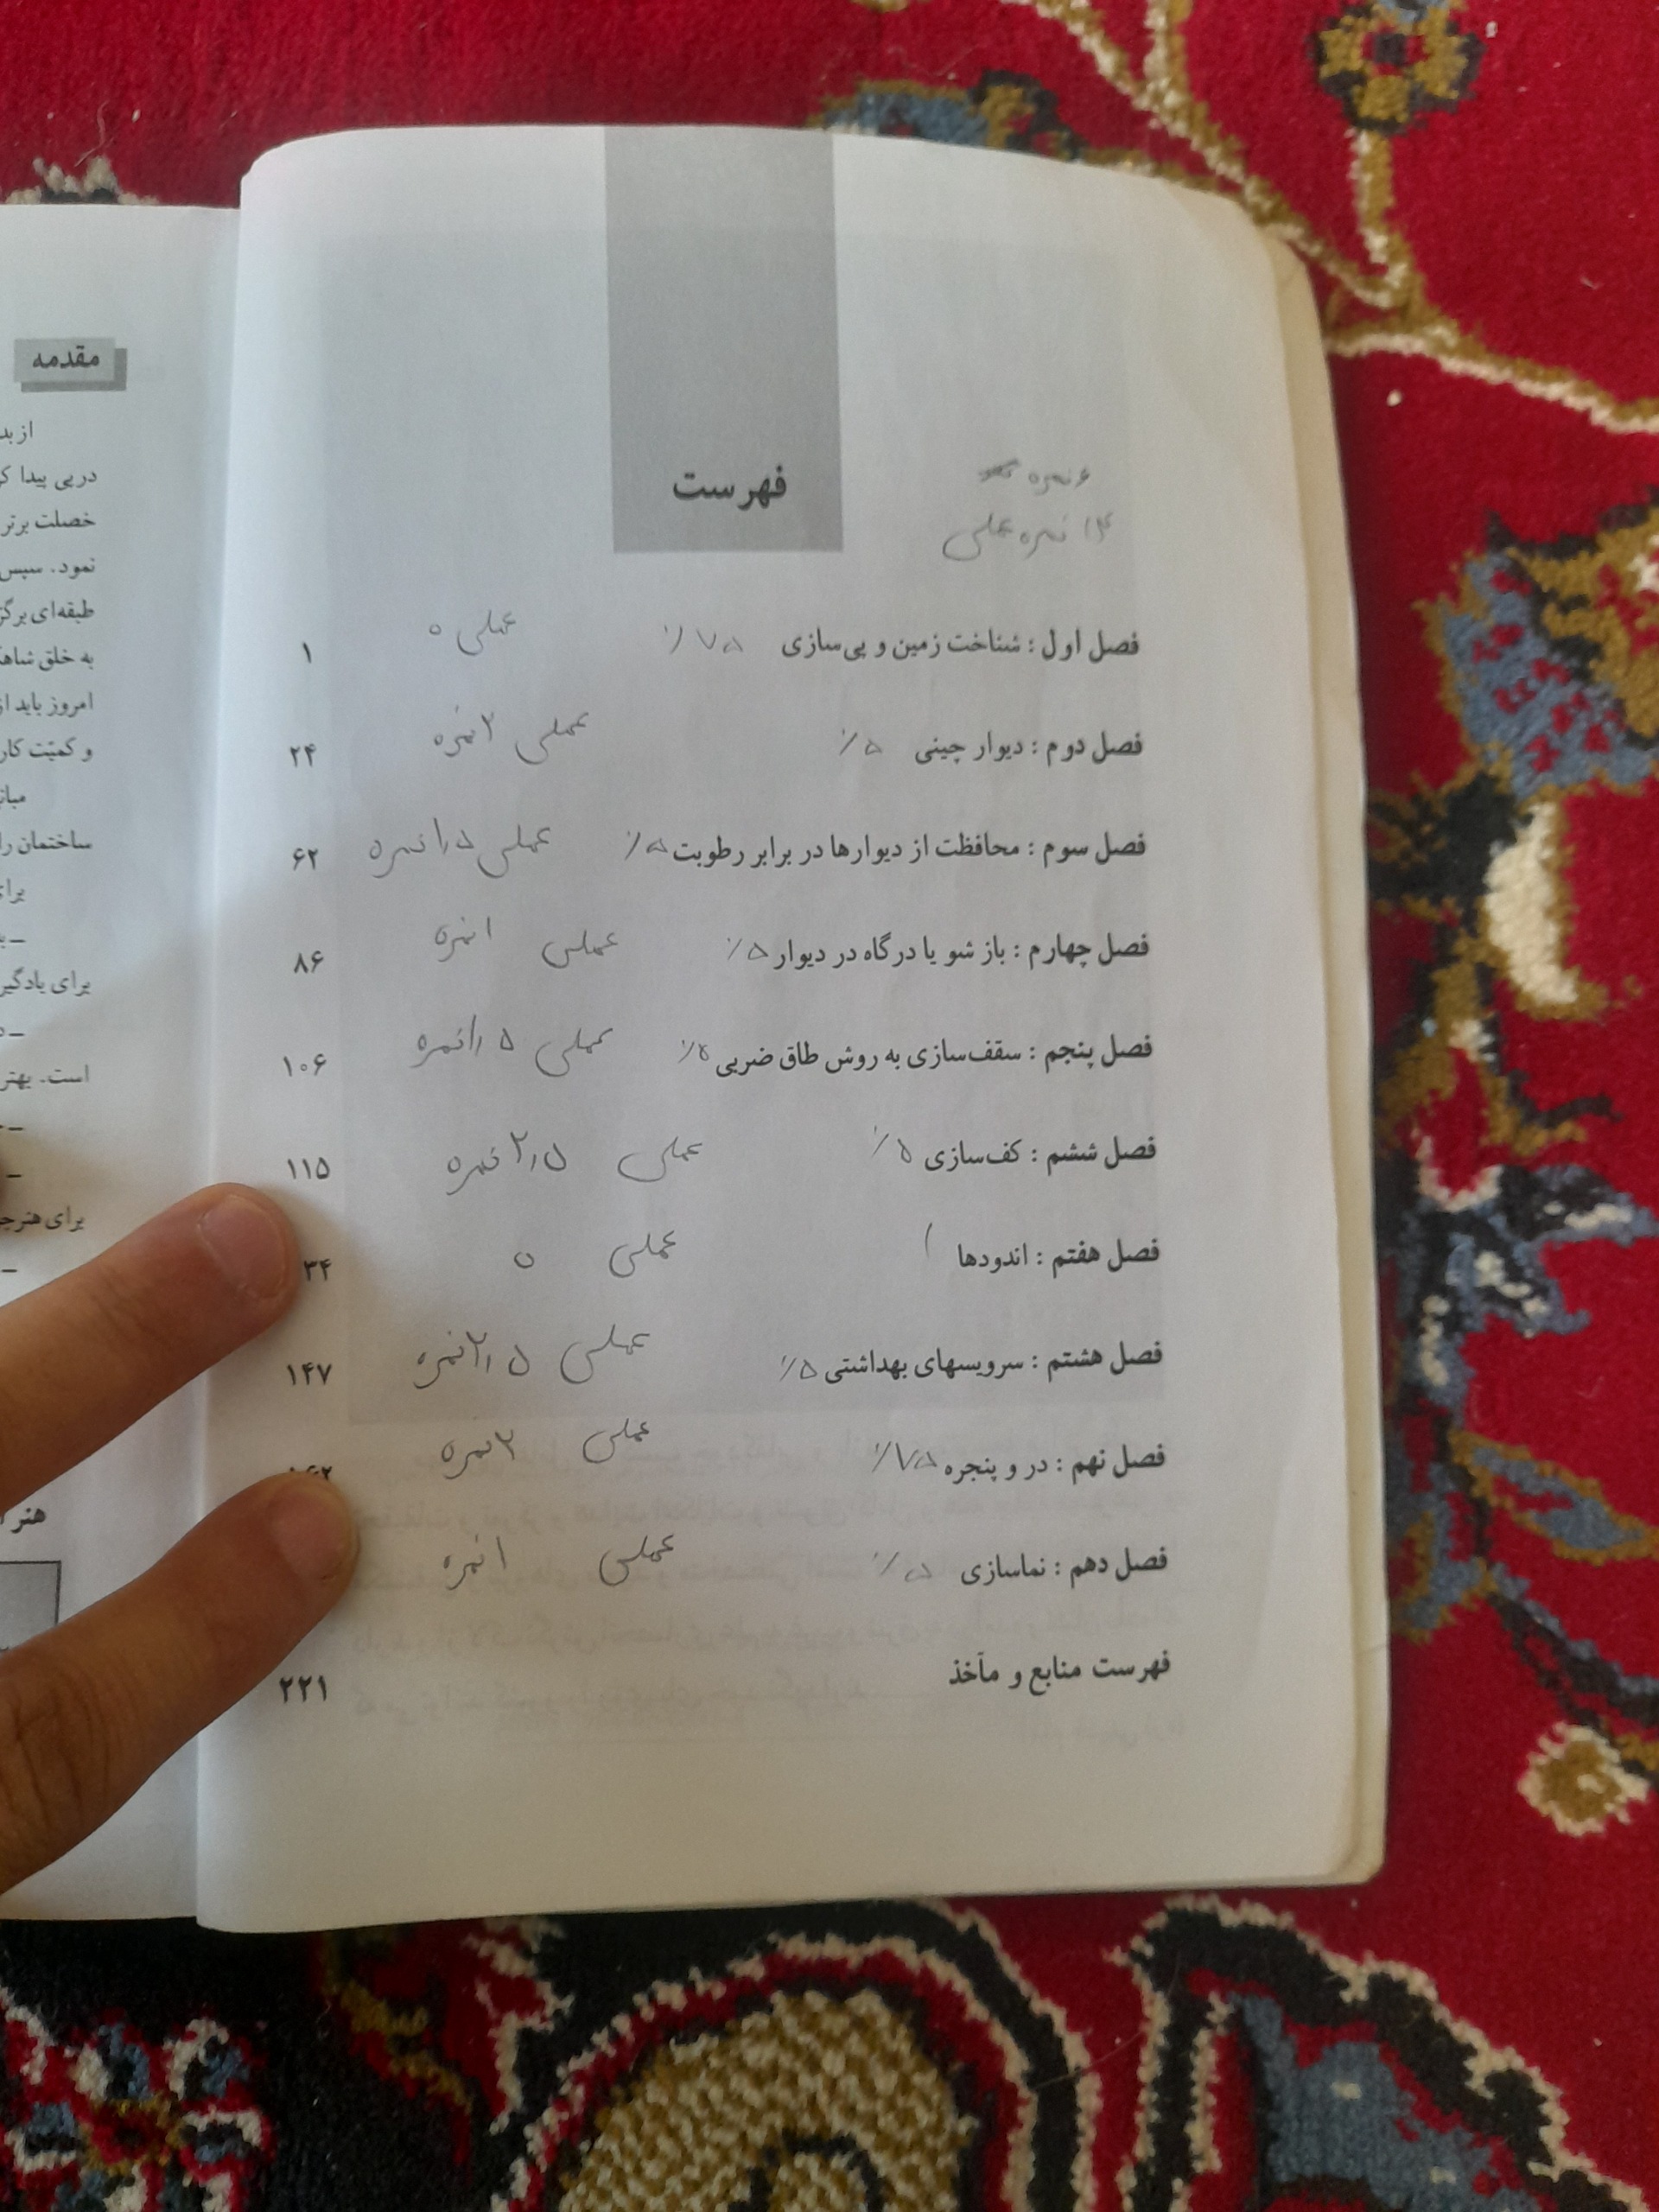 فهرست
۶ نمره
۱۴ نمره عملی
فصل اول : شناخت زمین و پی‌سازی ٪۷۵ عملی ۰ ۱
فصل دوم : دیوار چینی ٪۵ عملی ۲ نمره ۲۴
فصل سوم : محافظت از دیوارها در برابر رطوبت ٪۵ عملی ۱٫۵ نمره ۶۲
فصل چهارم : باز شو یا درگاه در دیوار ٪۵ عملی ۱ نمره ۸۶
فصل پنجم : سقف‌سازی به روش طاق ضربی ٪۵ عملی ۱٫۵ نمره ۱۰۶
فصل ششم : کف‌سازی ٪۵ عملی ۲٫۵ نمره ۱۱۵
فصل هفتم : اندودها ۱ عملی ۰ ۳۴
فصل هشتم : سرویسهای بهداشتی ٪۵ عملی ۲٫۵ نمره ۱۴۷
فصل نهم : در و پنجره ٪۷۵ عملی ۲ نمره
فصل دهم : نماسازی ٪۵ عملی ۱ نمره
فهرست منابع و مآخذ ۲۲۱
مقدمه
از بد
درپی پیدا ک
خصلت برتر
نمود. سپس
طبقه‌ای برگز
به خلق شاهک
امروز باید از
و کمیّت کار
مبان
ساختمان را
برای
برای یادگیر
است. بهتر
برای هنرج
هنر